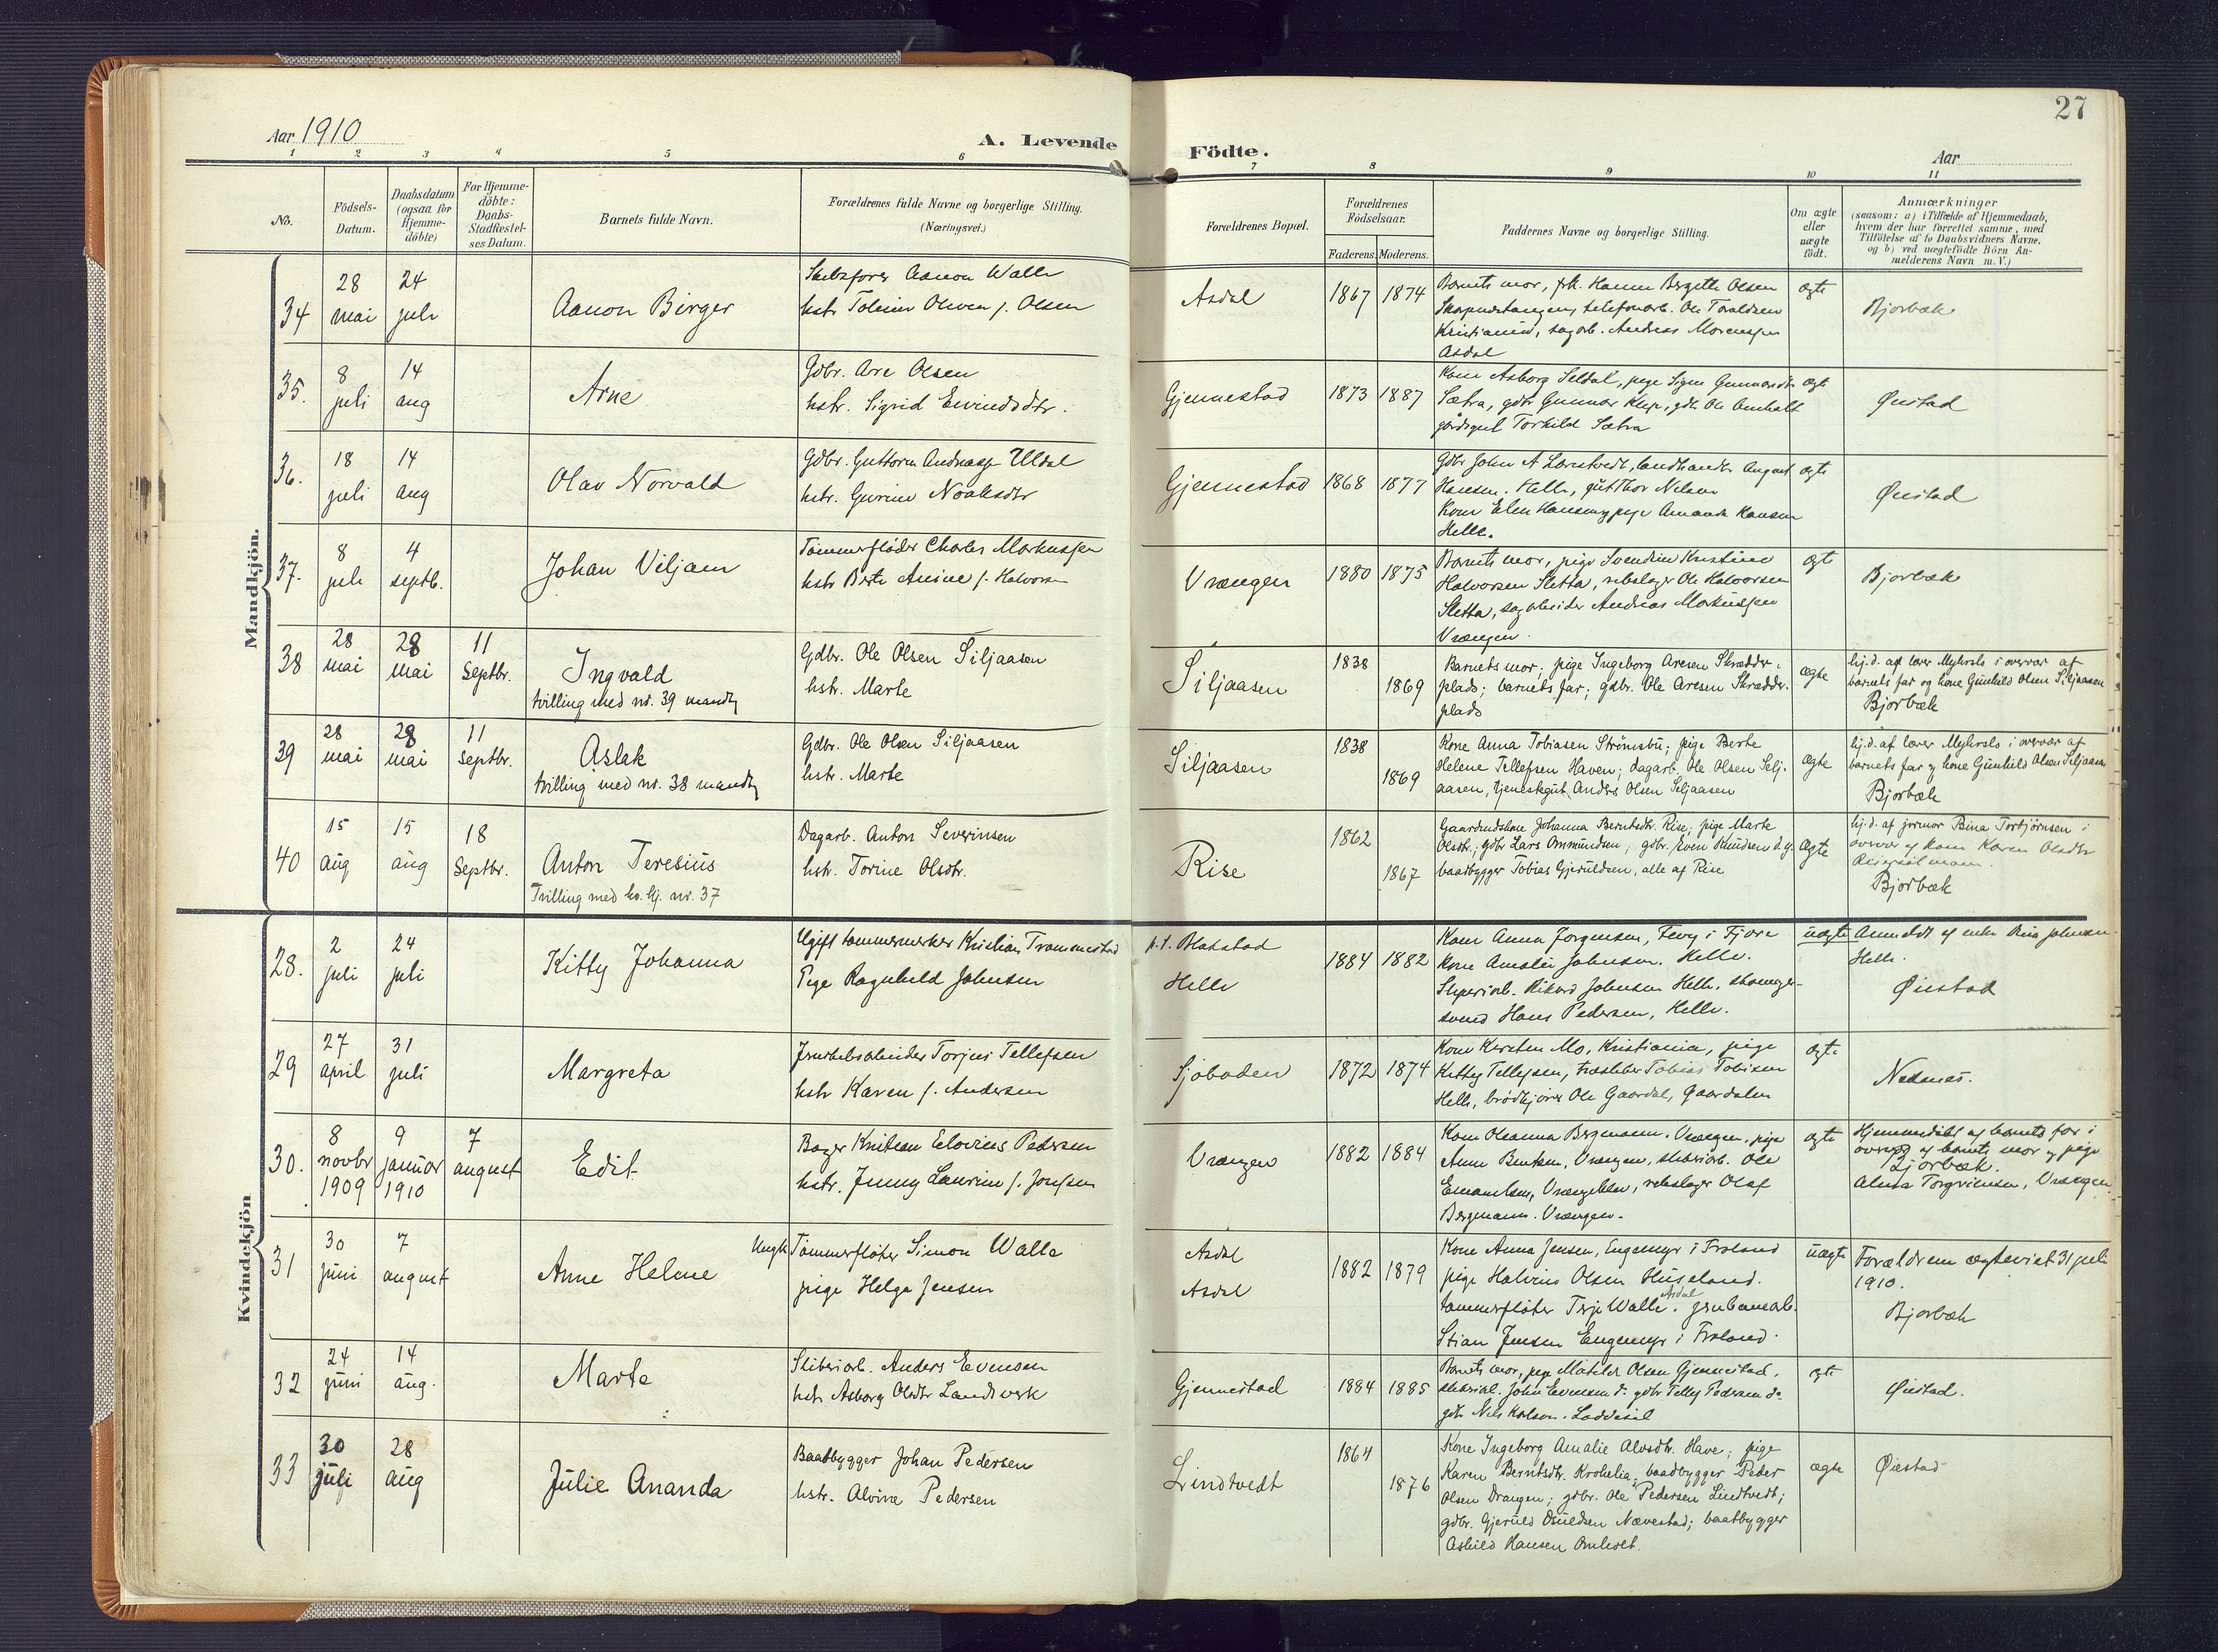 27
Aar 1910
A. Levende
Födte.
Aar
1 2 3 4 5 6 7 8 9 10 11
No.
Födsels-
Datum.
Daabsdatum
(ogsaa for
Hjemme-
döbte)
For Hjemme-
döbte:
Daabs-
Stadfæstel-
ses Datum.
Barnets fulde Navn.
Forældrenes fulde Navne og borgerlige Stilling.
(Næringsvei.)
Forældrenes Bopæl.
Forældrenes
Födselsaar.
Faderens. Moderens.
Faddernes Navne og borgerlige Stilling.
Om ægte
eller
uægte
födt.
Anmærkninger
(saasom: a) i Tilfælde af Hjemmedaab,
hvem der har forrettet samme, med
Tilföielse af to Daabsvidners Navne,
og b) ved uægtefödte Börn An-
melderens Navn m. V.)
Mandkjön.
34
28
mai
24
juli
Aanon Birger
Aanon Walle
hstr. Oliven f. Olsen
Asdal
1867 1874
Barnets mor, frk. Hanna Bergitte Olsen
telefonarb. Ole Taraldsen
Kristiania, sagarb. Andreas
Asdal
ægte
Bjorbæk
35.
8
juli
14
aug
Arne
Gdbr. Are Olsen
hstr. Sigrid Eivindsdtr.
Gjennestad
1873 1887
Kone Asborg Seldal, pige Signe
Sætra, gdbr Gunnar Klep, gdbr. Ole Omholt
Torkild Sætra
ægte
Øiestad
36.
18
juli
14
aug
Olav Norvald
Gdbr. Guttorm Andreasen Uldal
hstr. Gurine Noaksdtr
Gjennestad
1868 1877
Gdbr John A landhandl. August
Hansen, Helle, gut Thor Nilsen
Kone Elen Hansen, pige Amanda Hansen
Helle.
ægte
Øiestad
37.
8
juli
4
septb.
Johan Viljam
Tømmerfløder Charles Markussen
hstr Berte Anine f. Halvorsen
Vrængen
1880 1875
Barnets mor, pige Kristine
Halvorsen Sletta, rebslager Ole Halvorsen
Sletta, sagarbeider Andreas Markussen
Vrængen.
ægte
Bjorbæk
38
28
mai
28
mai
11
Septbr.
Ingvald
tvilling med nr. 39 mandkj
Gdbr. Ole Olsen Siljaasen
hstr. Marte
Siljaasen
1838
1869
Barnets mor; pige Ingeborg Aresen Skrædder-
plads; barnets far; gdbr. Ole Aresen Skrædder-
plads
ægte
hj.d. af lærer Myhrslo i overvær af
barnets far og kone Gunhild Olsen Siljaasen
Bjorbæk
39
28
mai
28
mai
11
Septbr.
Aslak
tvilling med nr. 38 mandkj
Gdbr. Ole Olsen Siljaasen
hstr. Marte
Siljaasen
1838
1869
Kone Anna Tobiasen Strömsbu; pige Berte
Helene Tellefsen Haven; dagarb. Ole Olsen Selj-
aasen, tjenestegut Anders Olsen Seljaasen
ægte
hj.d. af lærer Myhrslo i overvær af
barnets far og kone Gunhild Olsen Siljaasen
Bjorbæk
40
15
aug
15
aug
18
Septbr.
Anton Teresius
Tvilling med kv. kj. nr. 37
Dagarb. Anton Severinsen
hstr. Torine Olsdtr.
Rise
1862
1867
Gaardmandskone Johanna Berntsdtr. Rise; pige Marte
Olsdtr.; gdbr Lars Ommundsen; gdbr. Even Knudsen og
baadbygger Tobias Gjeruldsen, alle af Rise
ægte
hj.d. af jormor Bina Torbjörnsen i
overvær af kone Karen Olsdtr
Bjorbæk
Kvindekjön
28.
2
juli
24
juli
Kitty Johanna
Ugift tømmermerker Kristian Trommestad
Pige Ragnhild Johnsen
p.t. Blakstad
Helle
1884 1882
Kone Anna Jorgensen, Tevey i Fjære
Kone Amalie Johnsen, Helle.
Sliperiarb. Rikard Johnsen Helle,
svend Hans Pedersen, Helle.
uægte
Anmeldt af enke Johnsen
Helle.
Øiestad
29
27
april
31
juli
Margreta
Torjus Tellefsen
hstr Karen f. Andersen
Sjøboden
1872 1874
Kone Kirsten Mo, Kristiania, pige
Kitty Tellefsen, Tobias Tobisen
Helle, brödkjører Ole Gaardal, Gaardalen
ægte
Nedenes.
30.
8
novbr
1909
9
januar
1910
7
august
Edit
Bager Kristian Pedersen
hstr. Jenny Laurine f. Jonsen
Vrængen
1882 1884
Kone Oleanna Bergmann, Vrængen, pige
Anna Bentsen, Vrængen, sliberiarb. Ole
Emanuelsen, rebslager Olaf
Bergmann. Vrængen.
ægte
Hjemmedöbt af barnets far i
overvær af barnets mor og pige
Bjorbæk.
Alma Torgriemsen, Vrængen
31
30
juni
7
august
Anne Helene
Ungk Tømmerfløter Simon Walle
pige Helga Jensen
Asdal
Asdal
1882 1879
Kone Anna Jensen, Engemyr i Froland
pige Halvine Olsen Huseland.
tømmerfløter Terje Walle, Asdal. jernbanearb.
Stian Jensen Engemyr i Froland.
uægte
Forældrene ægteviet 31 juli
1910.
Bjorbæk
32
24
juni
14
aug.
Marta
Sliberiarb. Anders Evensen
hstr Asborg Olsdtr Landverk
Gjennestad
1884 1885
Barnets mor, pige Matilde Olsen Gjennestad,
sliberiarb. John Evensen do gdbr Tellef Pedersen do
gdbr Nils Karlsen. Loddesøl
ægte
Øiestad.
33
30
juli
28
aug
Julie Ananda
Baadbygger Johan Pedersen
hstr. Alvine Pedersen
Lindtvedt
1864
1876
Kone Ingeborg Amalie Alvsdtr. Have; pige
Karen Berntsdtr. Krokelia; baadbygger Peder
Olsen Drangen; gdbr. Ole Pedersen Lindtvedt;
gdbr. Gjeruld Osuldsen Nævestad; baatbygger
Askild Hansen Omholt.
ægte
Øiestad